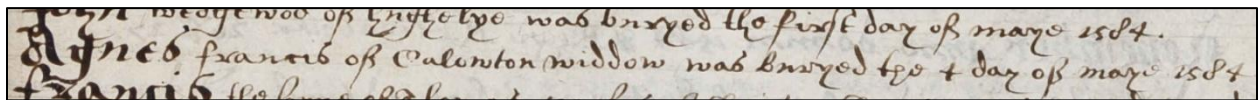 John wedgewod of hughelye was buryed the first day of maye 1584.
Agnes francis of Calowton widdow was buryed the 4 day of maye 1584
francis the sonne of